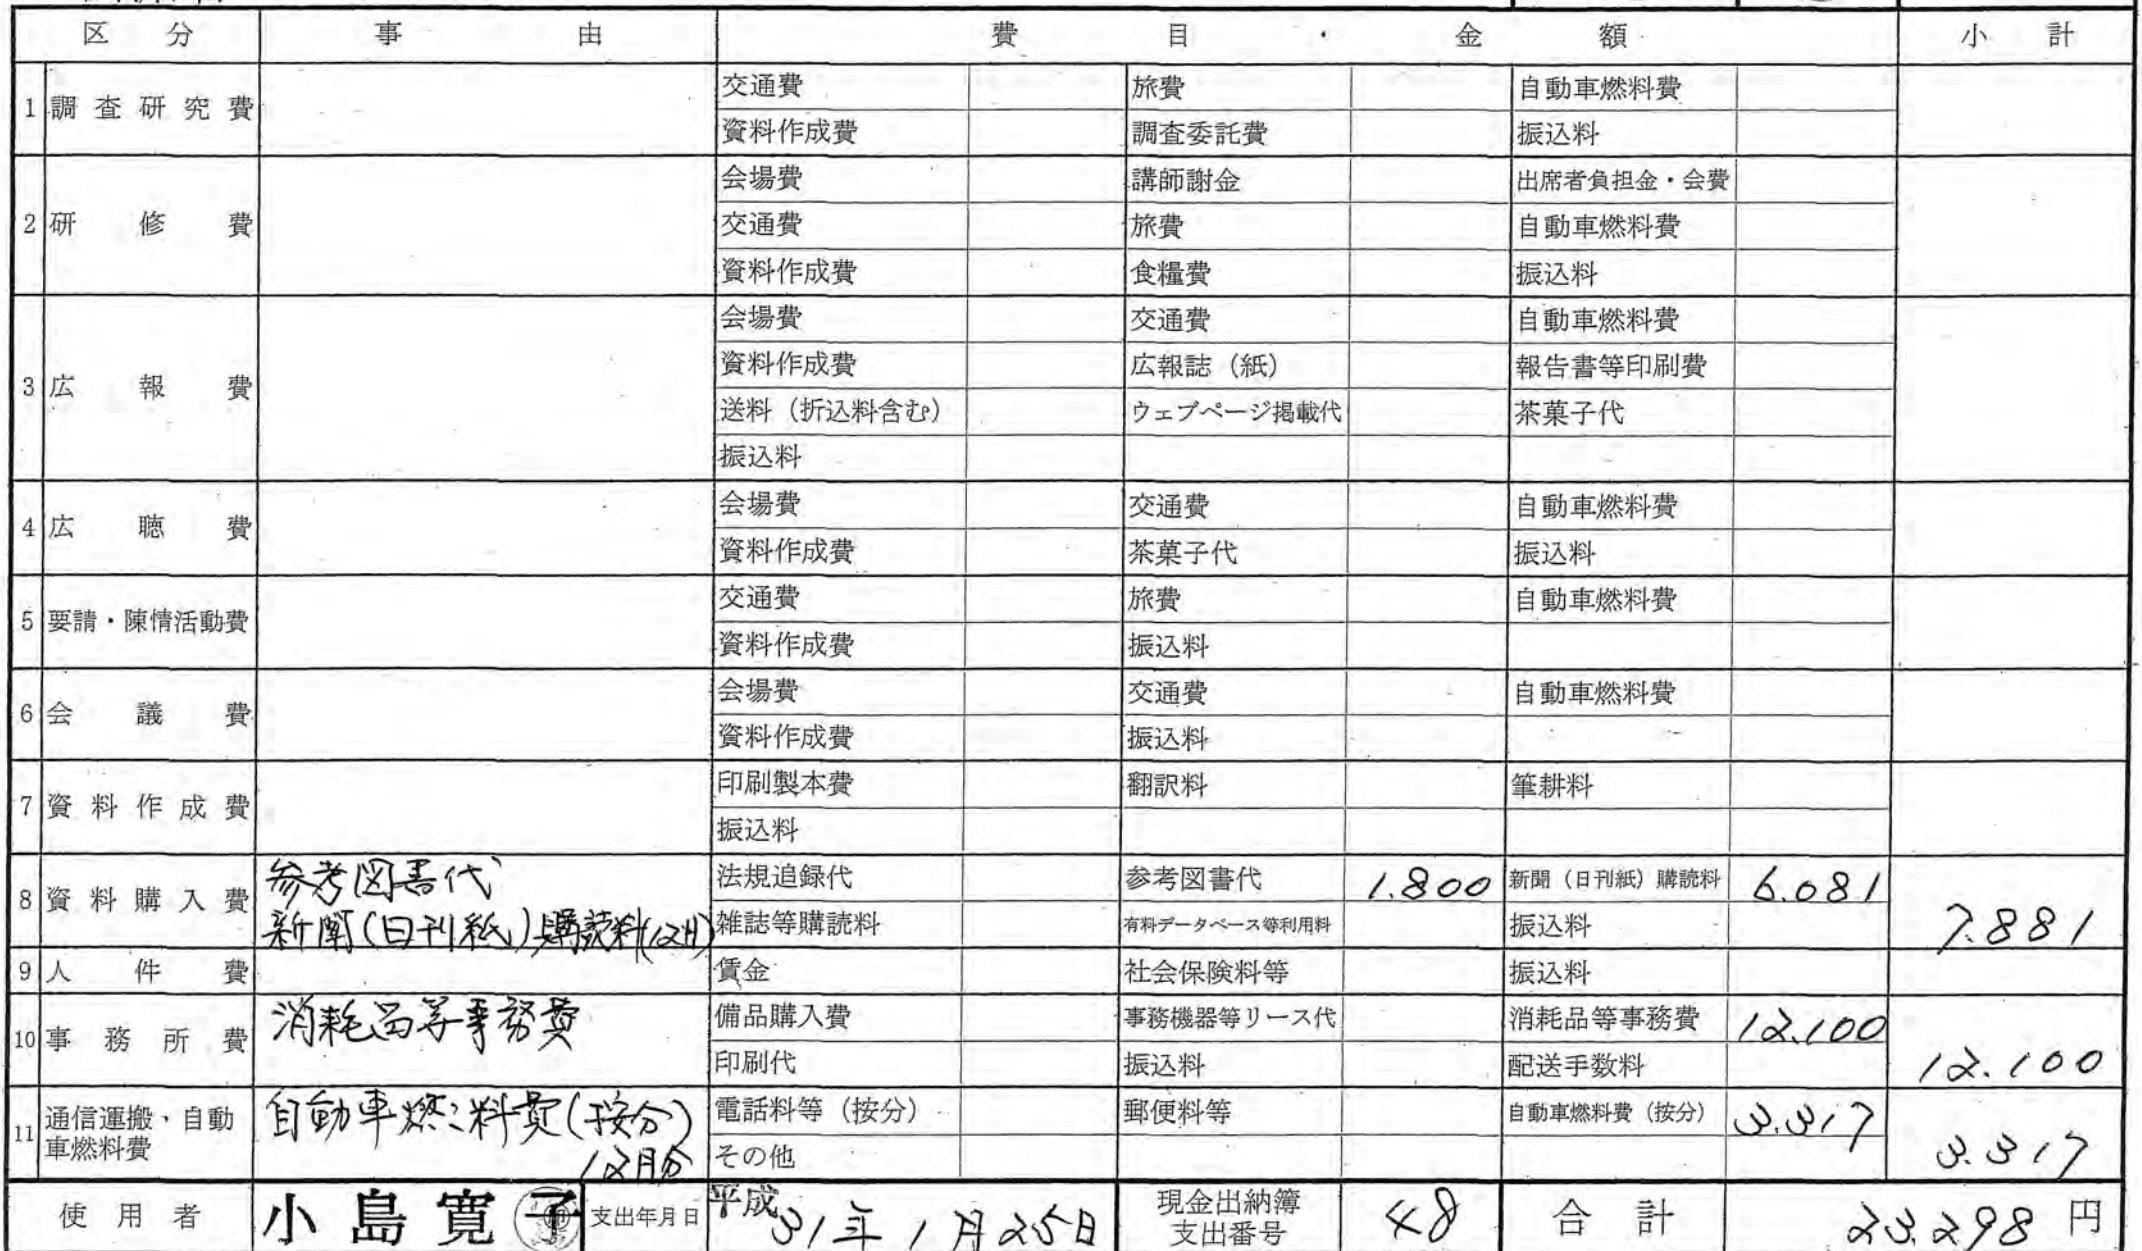 区分 事由 費目・金額 小計
1 調査研究費 交通費 旅費 自動車燃料費
資料作成費 調査委託費 振込料
2 研修費 会場費 講師謝金 出席者負担金・会費
交通費 旅費 自動車燃料費
資料作成費 食糧費 振込料
3 広報費 会場費 交通費 自動車燃料費
資料作成費 広報誌（紙） 報告書等印刷費
送料（折込料含む） ウェブページ掲載代 茶菓子代
振込料
4 広聴費 会場費 交通費 自動車燃料費
資料作成費 茶菓子代 振込料
5 要請・陳情活動費 交通費 旅費 自動車燃料費
資料作成費 振込料
6 会議費 会場費 交通費 自動車燃料費
資料作成費 振込料
7 資料作成費 印刷製本費 翻訳料 筆耕料
振込料
8 資料購入費 参考図書代 法規追録代 参考図書代 1.800 新聞（日刊紙）購読料 6.081
新聞(日刊紙)購読料(12月) 雑誌等購読料 有料データベース等利用料 振込料 7.881
9 人件費 賃金 社会保険料等 振込料
10 事務所費 消耗品等事務費 備品購入費 事務機器等リース代 消耗品等事務費 12.100
印刷代 振込料 配送手数料 12.100
11 通信運搬・自動車燃料費 自動車燃料費(按分) 電話料等（按分） 郵便料等 自動車燃料費（按分） 3.317
12月分 その他 3.317
使用者 小島寛子 支出年月日 平成31年1月25日 現金出納簿支出番号 48 合計 23.298円